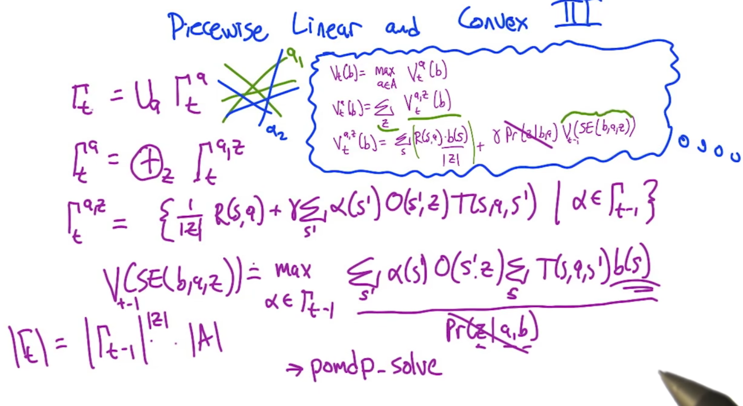 Piecewise Linear and Convex III
Γ_t = ∪_a Γ_t^a
a_1
a_2
V_t(b) = max_{a∈A} V_t^a(b)
V_t^a(b) = Σ_z V_t^{a,z}(b)
V_t^{a,z}(b) = Σ_s (R(s,a)·b(s) / |z|) + γ Pr(z|b,a) V_{t-1}(SE(b,a,z))
Γ_t^a = ⊕_z Γ_t^{a,z}
Γ_t^{a,z} = { 1/|z| R(s,a) + γ Σ_{s'} α(s') O(s',z) T(s,a,s') | α ∈ Γ_{t-1} }
V_{t-1}(SE(b,a,z)) = max_{α∈Γ_{t-1}} Σ_{s'} α(s') O(s',z) Σ_s T(s,a,s') b(s) / Pr(z|a,b)
|Γ_t| = |Γ_{t-1}|^{|z|} · |A|
→ pomdp_solve